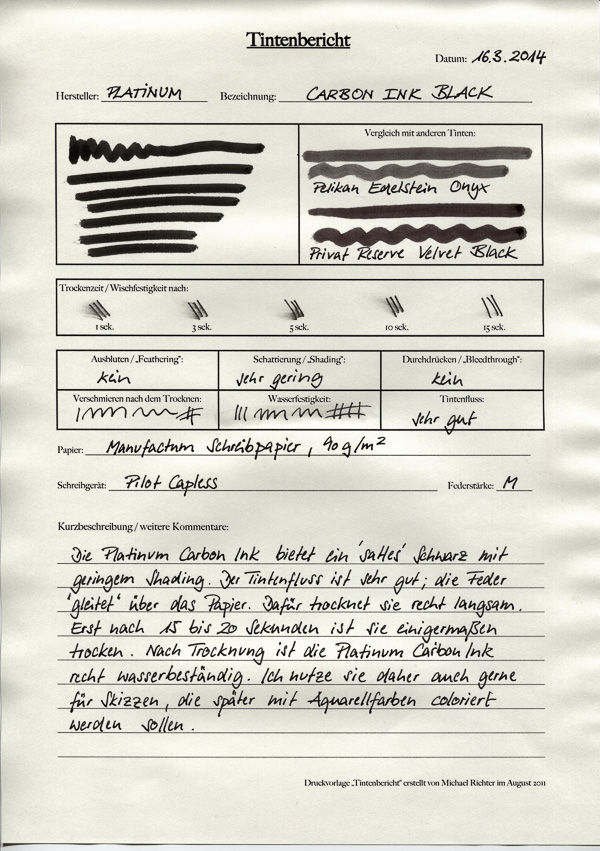 Tintenbericht
Datum: 16.3.2014
Hersteller: PLATINUM Bezeichnung: CARBON INK BLACK
Vergleich mit anderen Tinten:
Pelikan Edelstein Onyx
Privat Reserve Velvet Black
Trockenzeit / Wischfestigkeit nach:
1 sek. 3 sek. 5 sek. 10 sek. 15 sek.
Ausbluten / „Feathering": Schattierung / „Shading": Durchdrücken / „Bleedthrough":
kein sehr gering kein
Verschmieren nach dem Trocknen: Wasserfestigkeit: Tintenfluss:
sehr gut
Papier: Manufactum Schreibpapier, 90g/m²
Schreibgerät: Pilot Capless Federstärke: M
Kurzbeschreibung / weitere Kommentare:
Die Platinum Carbon Ink bietet ein 'sattes' Schwarz mit
geringem Shading. Der Tintenfluss ist sehr gut; die Feder
'gleitet' über das Papier. Dafür trocknet sie recht langsam.
Erst nach 15 bis 20 Sekunden ist sie einigermaßen
trocken. Nach Trocknung ist die Platinum Carbon Ink
recht wasserbeständig. Ich nutze sie daher auch gerne
für Skizzen, die später mit Aquarellfarben coloriert
werden sollen.
Druckvorlage „Tintenbericht" erstellt von Michael Richter im August 2011